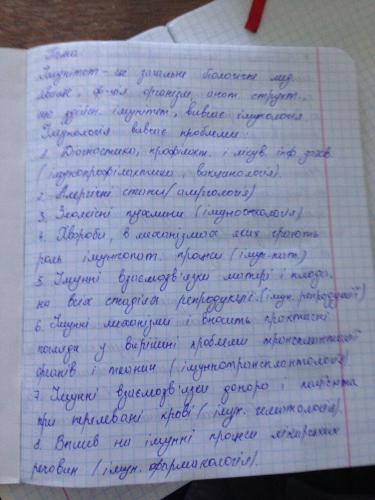 Тема
Імунітет - це загальне біологічне
ф-ція організм, анат структ.,
імунітет, вивчає імунологія
Імунологія вивчає проблеми:
1. Діагностика, профілакт. і лікув. інф. захв.
(імунопрофілактика, вакцинологія).
2. Алергічні стани (алергологія)
3. Злоякісні пухлини (імуноонкологія)
4. Хвороби, в механізмах яких грають
роль імунопат. процеси (імун. пат.)
5. Імунні взаємодзв'язки матері і плода,
на всіх стадіях репродукції. (імун. репродукції)
6. Імунні механізми і вносить практичні
погляди у вирішенні проблеми трансплантації
органів і тканин (імунотрансплантологія)
7. Імунні взаємодзв'язки донора і пацієнта
при переливані крові (імун. гематологія).
8. Вплив на імунні процеси лікарських
речовин (імун. фармакологія).